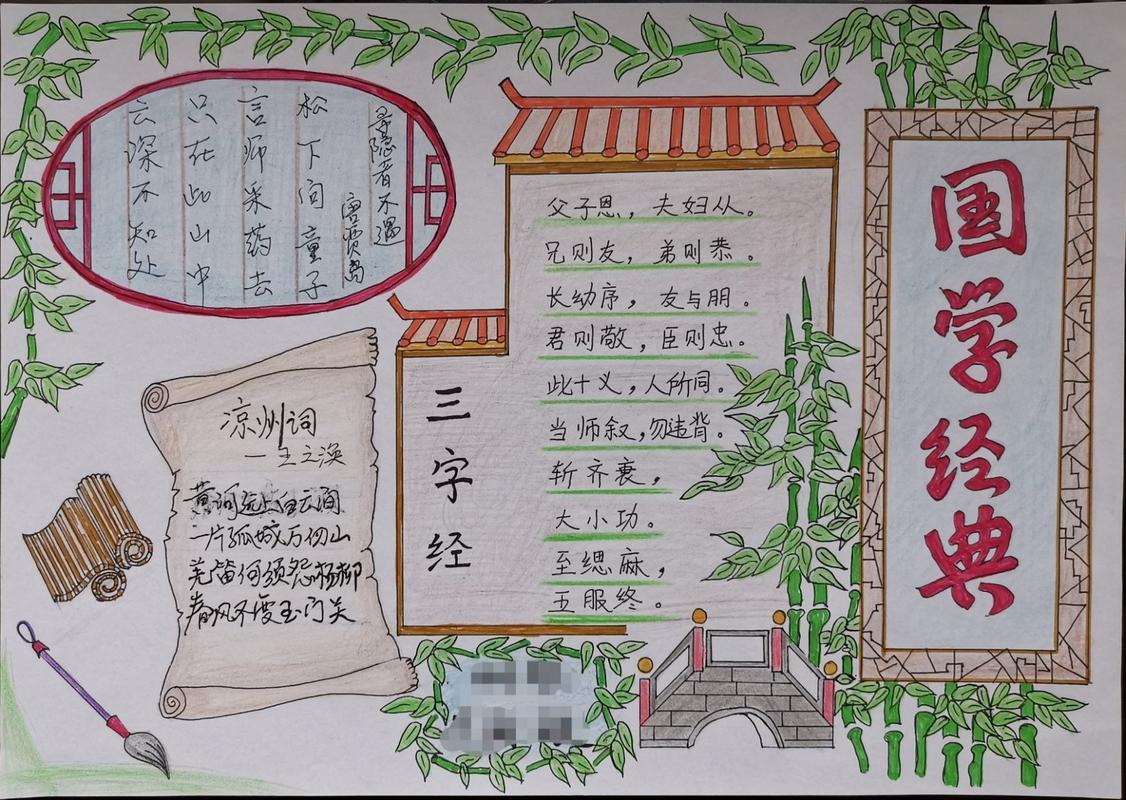 国学经典
寻隐者不遇
唐贾岛
松下问童子
言师采药去
只在此山中
云深不知处
三字经
父子恩，夫妇从。
兄则友，弟则恭。
长幼序，友与朋。
君则敬，臣则忠。
此十义，人所同。
当师叙，勿违背。
斩齐衰，
大小功。
至缌麻，
五服终。
凉州词
一王之涣
黄河远上白云间
一片孤城万仞山
羌笛何须怨杨柳
春风不度玉门关